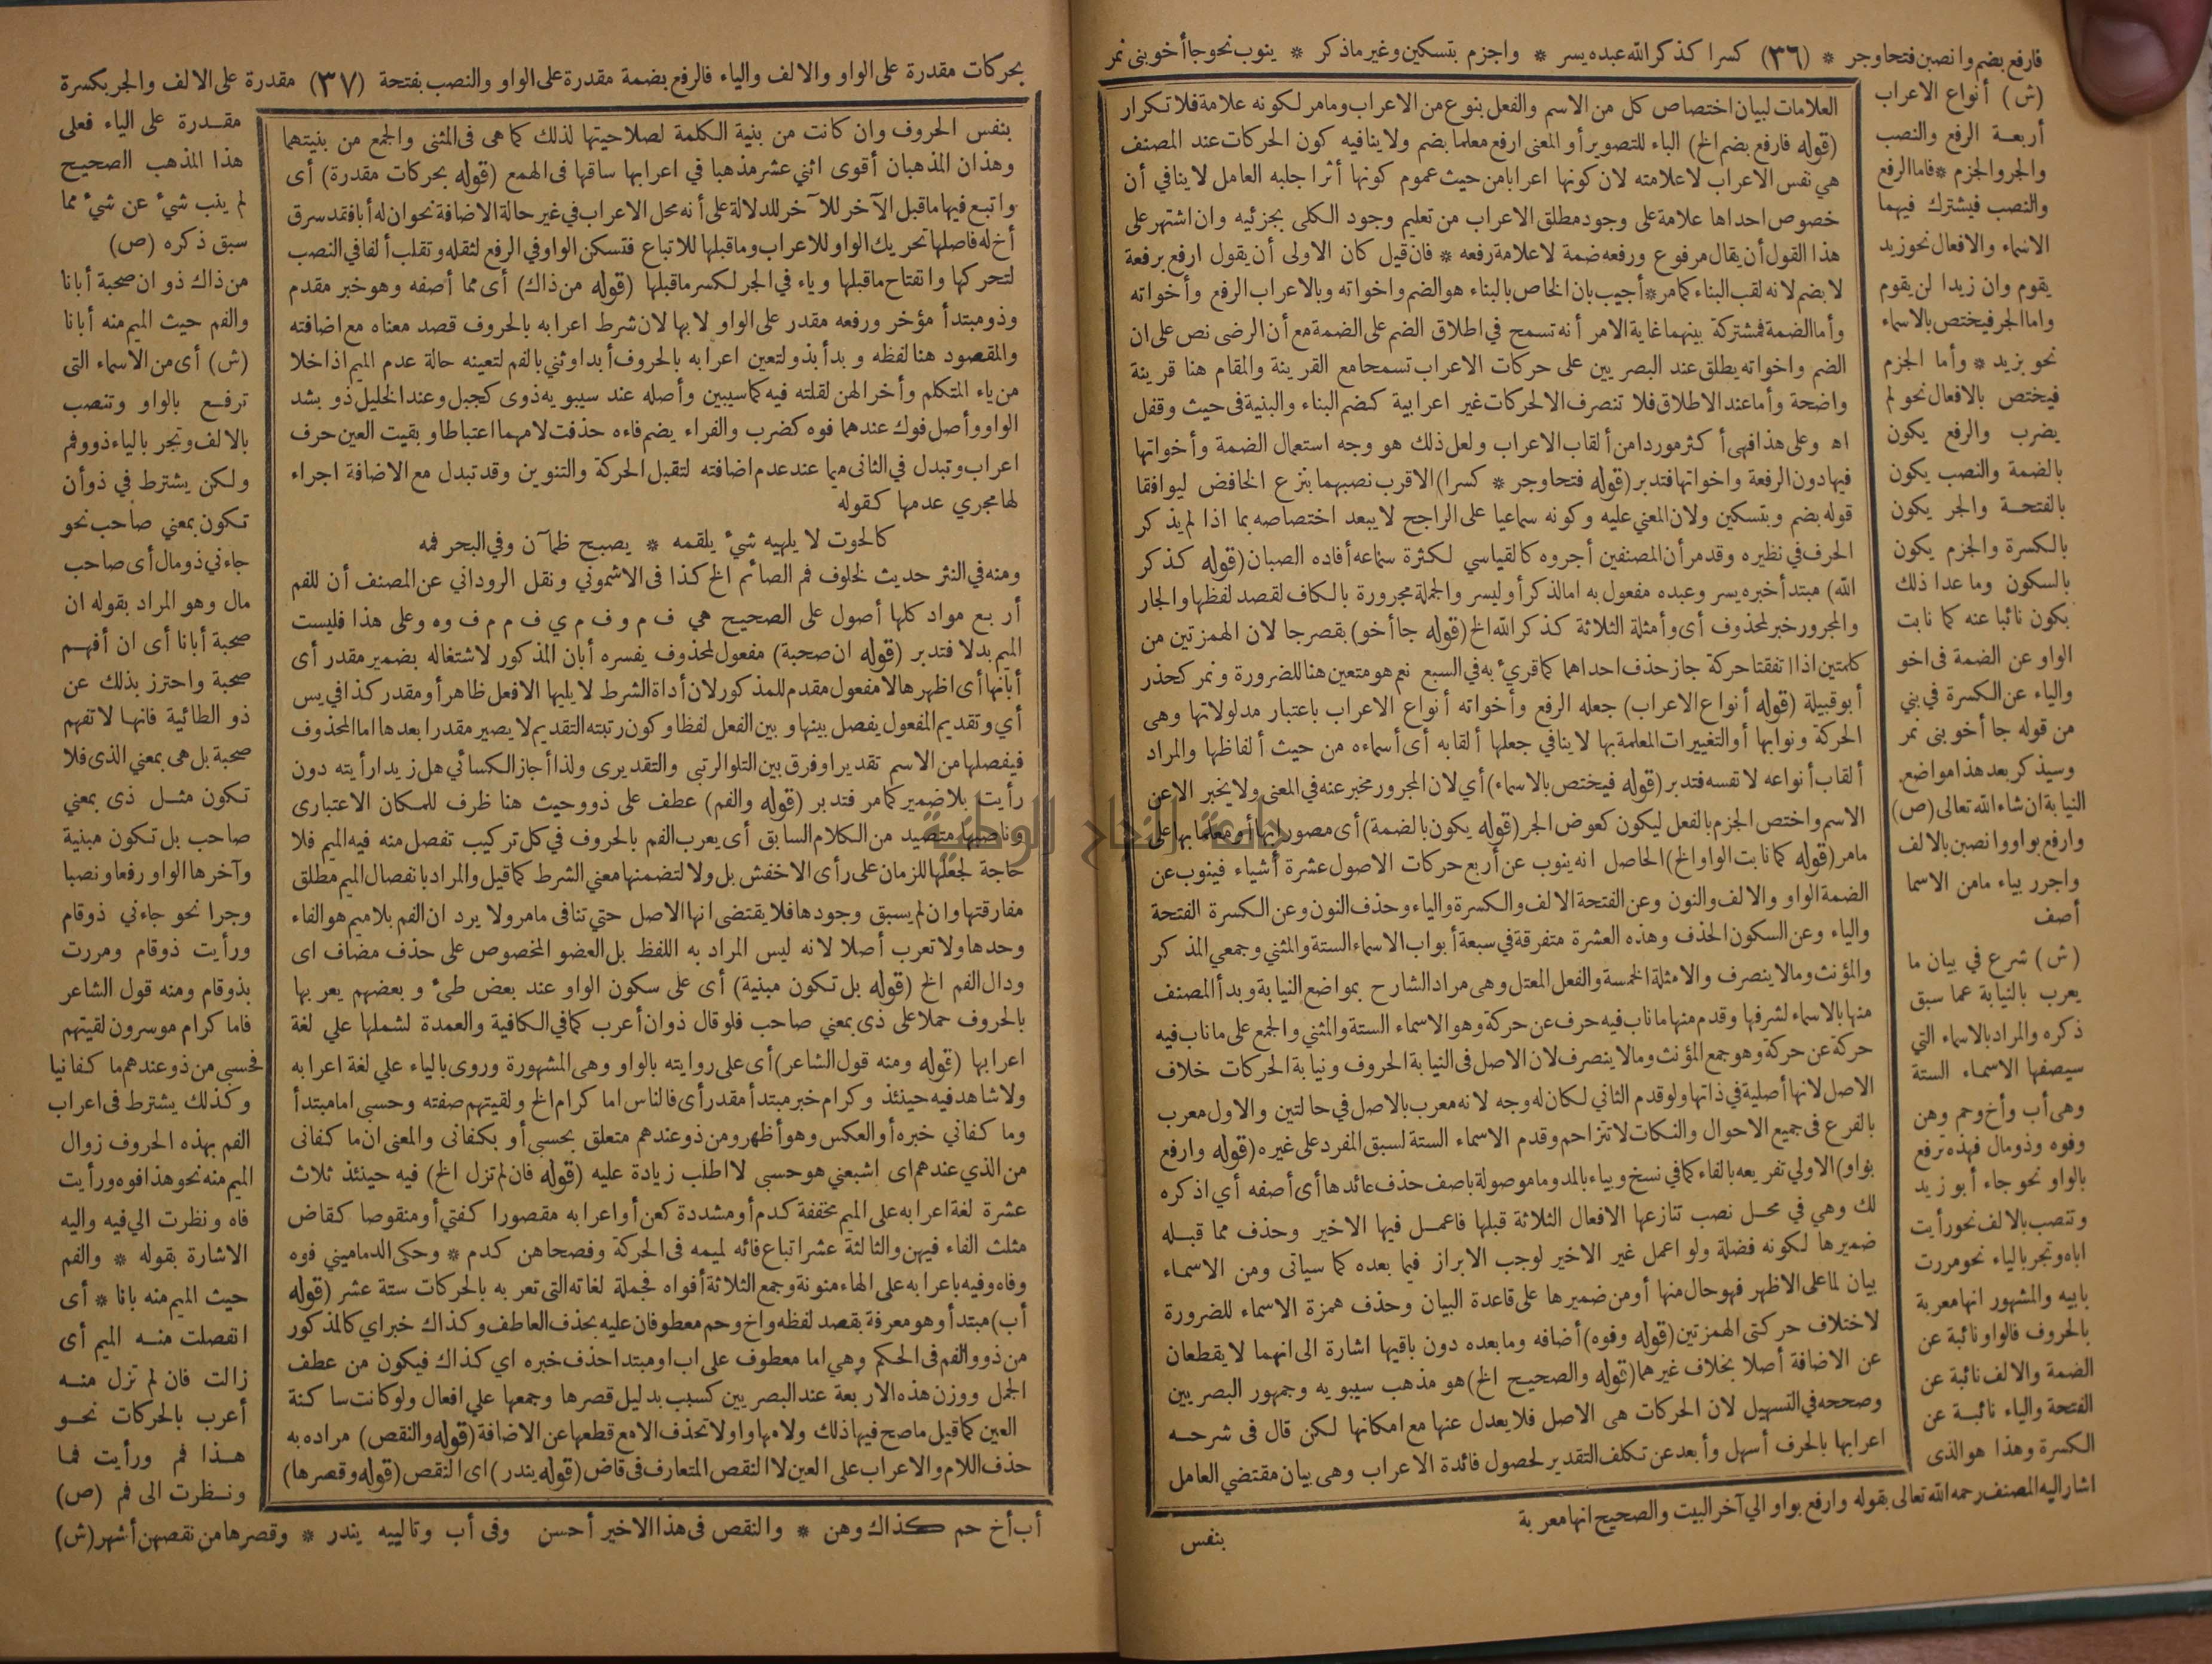 فارفع بضم وانصبن فتحا وجر * (٣٦) كسرا كذكر الله عبده يسر * واجزم بتسكين وغير ماذكر * ينوب نحو جا أخو بنى نمر
(ش) أنواع الاعراب
أربعة الرفع والنصب
والجر والجزم * فاما الرفع
والنصب فيشترك فيهما
الاسماء والافعال نحو زيد
يقوم وان زيدا لن يقوم
واما الجر فيختص بالاسماء
نحو بزيد * وأما الجزم
فيختص بالافعال نحو لم
يضرب والرفع يكون
بالضمة والنصب يكون
بالفتحة والجر يكون
بالكسرة والجزم يكون
بالسكون وما عدا ذلك
يكون نائبا عنه كما نابت
الواو عن الضمة فى اخو
والياء عن الكسرة في بني
من قوله جا أخو بنى نمر
وسيذكر بعد هذا مواضع
النيابة ان شاء الله تعالى (ص)
وارفع بواو وانصبن بالالف
واجرر بياء مامن الاسما
أصف
(ش) شرع في بيان ما
يعرب بالنيابة عما سبق
ذكره والمراد بالاسماء التي
سيصفها الاسماء الستة
وهى أب وأخ وحم وهن
وفوه وذو مال فهذه ترفع
بالواو نحو جاء أبو زيد
وتنصب بالالف نحو رأيت
اباه وتجر بالياء نحو مررت
بابيه والمشهور انها معربة
بالحروف فالواو نائبة عن
الضمة والالف نائبة عن
الفتحة والياء نائبة عن
الكسرة وهذا هو الذى
اشار اليه المصنف رحمه الله تعالى بقوله وارفع بواو الي آخر البيت والصحيح انها معربة
العلامات لبيان اختصاص كل من الاسم والفعل بنوع من الاعراب ومامر لكونه علامة فلا تكرار
(قوله فارفع بضم الخ) الباء للتصوير أو المعنى ارفع معلما بضم ولا ينافيه كون الحركات عند المصنف
هي نفس الاعراب لا علامته لان كونها اعرابا من حيث عموم كونها أثرا جلبه العامل لا ينافي أن
خصوص احداها علامة على وجود مطلق الاعراب من تعليم وجود الكلى بجزئيه وان اشتهر على
هذا القول أن يقال مرفوع ورفعه ضمة لا علامة رفعه * فان قيل كان الاولى أن يقول ارفع برفعة
لا بضم لانه لقب البناء كما مر * أجيب بان الخاص بالبناء هو الضم واخواته وبالاعراب الرفع وأخواته
وأما الضمة فمشتركة بينهما غاية الامر أنه تسمح في اطلاق الضم على الضمة مع أن الرضى نص على ان
الضم واخواته يطلق عند البصريين على حركات الاعراب تسمحا مع القرينة والمقام هنا قرينة
واضحة وأما عند الاطلاق فلا تنصرف الا لحركات غير اعرابية كضم البناء والبنية فى حيث وقفل
اه وعلى هذا فهى أكثر موردا من ألقاب الاعراب ولعل ذلك هو وجه استعمال الضمة وأخواتها
فيها دون الرفعة واخواتها فتدبر (قوله فتحا وجر * كسرا) الاقرب نصبهما بنزع الخافض ليوافقا
قوله بضم وبتسكين ولان المعني عليه وكونه سماعيا على الراجح لا يبعد اختصاصه بما اذا لم يذكر
الحرف في نظيره وقد مر أن المصنفين أجروه كالقياسي لكثرة سماعه أفاده الصبان (قوله كذكر
الله) مبتدأ خبره يسر وعبده مفعول به اما لذكر أو ليسر والجملة مجرورة بالكاف لقصد لفظها والجار
والمجرور خبر لمحذوف أى وأمثلة الثلاثة كذكر الله الخ (قوله جا أخو) بقصر جا لان الهمزتين من
كلمتين اذا اتفقتا حركة جاز حذف احداهما كما قريء به في السبع نعم هو متعين هنا للضرورة ونمر كحذر
أبو قبيلة (قوله أنواع الاعراب) جعله الرفع وأخواته أنواع الاعراب باعتبار مدلولاتها وهى
الحركة ونوابها أو التغييرات المعلمة بها لا ينافي جعلها ألقابه أى أسماءه من حيث ألفاظها والمراد
ألقاب أنواعه لا نفسه فتدبر (قوله فيختص بالاسماء) أي لان المجرور مخبر عنه في المعنى ولا يخبر الا عن
الاسم واختص الجزم بالفعل ليكون كعوض الجر (قوله يكون بالضمة) أى مصورا بها أو معلما بها على
مامر (قوله كما نابت الواو الخ) الحاصل انه ينوب عن أربع حركات الاصول عشرة أشياء فينوب عن
الضمة الواو والالف والنون وعن الفتحة الالف والكسرة والياء وحذف النون وعن الكسرة الفتحة
والياء وعن السكون الحذف وهذه العشرة متفرقة في سبعة أبواب الاسماء الستة والمثني وجمعي المذكر
والمؤنث وما لا ينصرف والامثلة الخمسة والفعل المعتل وهى مراد الشارح بمواضع النيابة وبدأ المصنف
منها بالاسماء لشرفها وقدم منها ما ناب فيه حرف عن حركة وهو الاسماء الستة والمثني والجمع على ما ناب فيه
حركة عن حركة وهو جمع المؤنث وما لا ينصرف لان الاصل فى النيابة الحروف ونيابة الحركات خلاف
الاصل لانها أصلية في ذاتها ولو قدم الثاني لكان له وجه لانه معرب بالاصل في حالتين والاول معرب
بالفرع فى جميع الاحوال والنكات لا تتزاحم وقدم الاسماء الستة لسبق المفرد على غيره (قوله وارفع
بواو) الاولي تفريعه بالفاء كما في نسخ وبياء بالمد وما موصولة باصف حذف عائدها أى أصفه أي اذكره
لك وهي في محل نصب تنازعها الافعال الثلاثة قبلها فاعمل فيها الاخير وحذف مما قبله
ضميرها لكونه فضلة ولو اعمل غير الاخير لوجب الابراز فيما بعده كما سيأتى ومن الاسماء
بيان لما على الاظهر فهو حال منها أو من ضميرها على قاعدة البيان وحذف همزة الاسماء للضرورة
لاختلاف حركتى الهمزتين (قوله وفوه) أضافه وما بعده دون باقيها اشارة الى انهما لا يقطعان
عن الاضافة أصلا بخلاف غيرهما (قوله والصحيح الخ) هو مذهب سيبويه وجمهور البصريين
وصححه في التسهيل لان الحركات هى الاصل فلا يعدل عنها مع امكانها لكن قال فى شرحه
اعرابها بالحرف أسهل وأبعد عن تكلف التقدير لحصول فائدة الاعراب وهى بيان مقتضي العامل
بنفس
بحركات مقدرة على الواو والالف والياء فالرفع بضمة مقدرة على الواو والنصب بفتحة (٣٧) مقدرة على الالف والجر بكسرة
بنفس الحروف وان كانت من بنية الكلمة لصلاحيتها لذلك كما هى فى المثنى والجمع من بنيتهما
وهذان المذهبان أقوى اثني عشر مذهبا في اعرابها ساقها فى الهمع (قوله بحركات مقدرة) أى
واتبع فيها ما قبل الآخر للآخر للدلالة على أنه محل الاعراب في غير حالة الاضافة نحو ان له أبا فقد سرق
أخ له فاصلها تحريك الواو للاعراب وما قبلها للاتباع فتسكن الواو في الرفع لثقله وتقلب ألفا في النصب
لتحركها وانفتاح ما قبلها وياء في الجر لكسر ما قبلها (قوله من ذاك) أى مما أصفه وهو خبر مقدم
وذو مبتدأ مؤخر ورفعه مقدر على الواو لا بها لان شرط اعرابه بالحروف قصد معناه مع اضافته
والمقصود هنا لفظه وبدأ بذو لتعين اعرابه بالحروف أبدا وثني بالفم لتعينه حالة عدم الميم اذا خلا
من ياء المتكلم وأخر الهن لقلته فيه كما سيبين وأصله عند سيبويه ذوى كجبل وعند الخليل ذو بشد
الواو وأصل فوك عندهما فوه كضرب والفراء يضم فاءه حذفت لامهما اعتباطا وبقيت العين حرف
اعراب وتبدل في الثانى ميما عند عدم اضافته لتقبل الحركة والتنوين وقد تبدل مع الاضافة اجراء
لها مجري عدمها كقوله
كالحوت لا يلهيه شيء يلقمه * يصبح ظمآن وفي البحر فمه
ومنه في النثر حديث لخلوف فم الصائم الخ كذا فى الاشموني ونقل الروداني عن المصنف أن للفم
أربع مواد كلها أصول على الصحيح هي ف م و ف م ي ف م م ف وه وعلى هذا فليست
الميم بدلا فتدبر (قوله ان صحبة) مفعول لمحذوف يفسره أبان المذكور لاشتغاله بضمير مقدر أى
أبانها أى اظهرها لا مفعول مقدم للمذكور لان أداة الشرط لا يليها الا فعل ظاهر أو مقدر كذا في يس
أي وتقديم المفعول يفصل بينها وبين الفعل لفظا وكون رتبته التقديم لا يصير مقدرا بعدها اما المحذوف
فيفصلها من الاسم تقديرا وفرق بين التلو الرتبى والتقديرى ولذا أجاز الكسائي هل زيدا رأيته دون
رأيت بلا ضمير كما مر فتدبر (قوله والفم) عطف على ذو وحيث هنا ظرف للمكان الاعتبارى
وناصبها متصيد من الكلام السابق أى يعرب الفم بالحروف في كل تركيب تفصل منه فيه الميم فلا
حاجة لجعلها للزمان على رأى الاخفش بل ولا لتضمنها معني الشرط كما قيل والمراد بانفصال الميم مطلق
مفارقتها وان لم يسبق وجودها فلا يقتضى انها الاصل حتي تنافى مامر ولا يرد ان الفم بلا ميم هو الفاء
وحدها ولا تعرب أصلا لانه ليس المراد به اللفظ بل العضو المخصوص على حذف مضاف اى
ودال الفم الخ (قوله بل تكون مبنية) أى على سكون الواو عند بعض طيء وبعضهم يعربها
بالحروف حملا على ذى بمعني صاحب فلو قال ذو ان أعرب كما في الكافية والعمدة لشملها علي لغة
اعرابها (قوله ومنه قول الشاعر) أى على روايته بالواو وهى المشهورة وروى بالياء علي لغة اعرابه
ولا شاهد فيه حينئذ وكرام خبر مبتدأ مقدر أى فالناس اما كرام الخ ولقيتهم صفته وحسبي اما مبتدأ
وما كفاني خبره أو العكس وهو أظهر ومن ذو عندهم متعلق بحسبي أو بكفانى والمعنى ان ما كفانى
من الذي عندهم اى اشبعني هو حسبى لا اطلب زيادة عليه (قوله فان لم تزل الخ) فيه حينئذ ثلاث
عشرة لغة اعرابه على الميم مخففة كدم أو مشددة كعن أو اعرابه مقصورا كفتي أو منقوصا كقاض
مثلث الفاء فيهن والثالثة عشر اتباع فائه لميمه فى الحركة وفصحاهن كدم * وحكى الدماميني فوه
وفاه وفيه باعرابه على الهاء منونة وجمع الثلاثة أفواه فجملة لغاته التى تعرب به بالحركات ستة عشر (قوله
أب) مبتدأ وهو معرفة بقصد لفظه واخ وحم معطوفان عليه بحذف العاطف وكذاك خبر اي كالمذكور
من ذو والفم فى الحكم وهي اما معطوف على اب او مبتدا حذف خبره اي كذاك فيكون من عطف
الجمل ووزن هذه الاربعة عند البصريين كسبب بدليل قصرها وجمعها علي افعال ولو كانت ساكنة
العين كما قيل ما صح فيها ذلك ولامها واو ولا تحذف الا مع قطعها عن الاضافة (قوله والنقص) مراده به
حذف اللام والاعراب على العين لا النقص المتعارف فى قاض (قوله يندر) اى النقص (قوله وقصرها)
مقدرة على الياء فعلى
هذا المذهب الصحيح
لم ينب شيء عن شيء مما
سبق ذكره (ص)
من ذاك ذو ان صحبة أبانا
والفم حيث الميم منه أبانا
(ش) أى من الاسماء التى
ترفع بالواو وتنصب
بالالف وتجر بالياء ذو وفم
ولكن يشترط في ذو أن
تكون بمعني صاحب نحو
جاءني ذو مال أى صاحب
مال وهو المراد بقوله ان
صحبة أبانا أى ان أفهم
صحبة واحترز بذلك عن
ذو الطائية فانها لا تفهم
صحبة بل هى بمعني الذى فلا
تكون مثل ذى بمعني
صاحب بل تكون مبنية
وآخرها الواو رفعا ونصبا
وجرا نحو جاءني ذو قام
ورأيت ذو قام ومررت
بذو قام ومنه قول الشاعر
فاما كرام موسرون لقيتهم
فحسبى من ذو عندهم ما كفانيا
وكذلك يشترط فى اعراب
الفم بهذه الحروف زوال
الميم منه نحو هذا فوه ورأيت
فاه ونظرت الي فيه واليه
الاشارة بقوله * والفم
حيث الميم منه بانا * أى
انفصلت منه الميم أى
زالت فان لم تزل منه
أعرب بالحركات نحو
هذا فم ورأيت فما
ونظرت الى فم (ص)
أب أخ حم كذاك وهن * والنقص فى هذا الاخير أحسن وفى أب وتالييه يندر * وقصرها من نقصهن أشهر (ش)
جامعة النجاح الوطنية